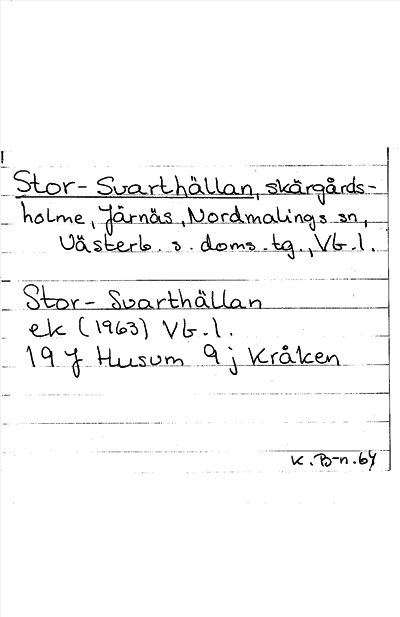 Stor-Svarthällan, skärgårds-
holme, Järnäs, Nordmalings sn,
Västerb. s. doms. tg., Vb. l.
Stor-Svarthällan
ek (1963) Vb. l.
19 J Husum 9 j Kråken
K. B-n. 64